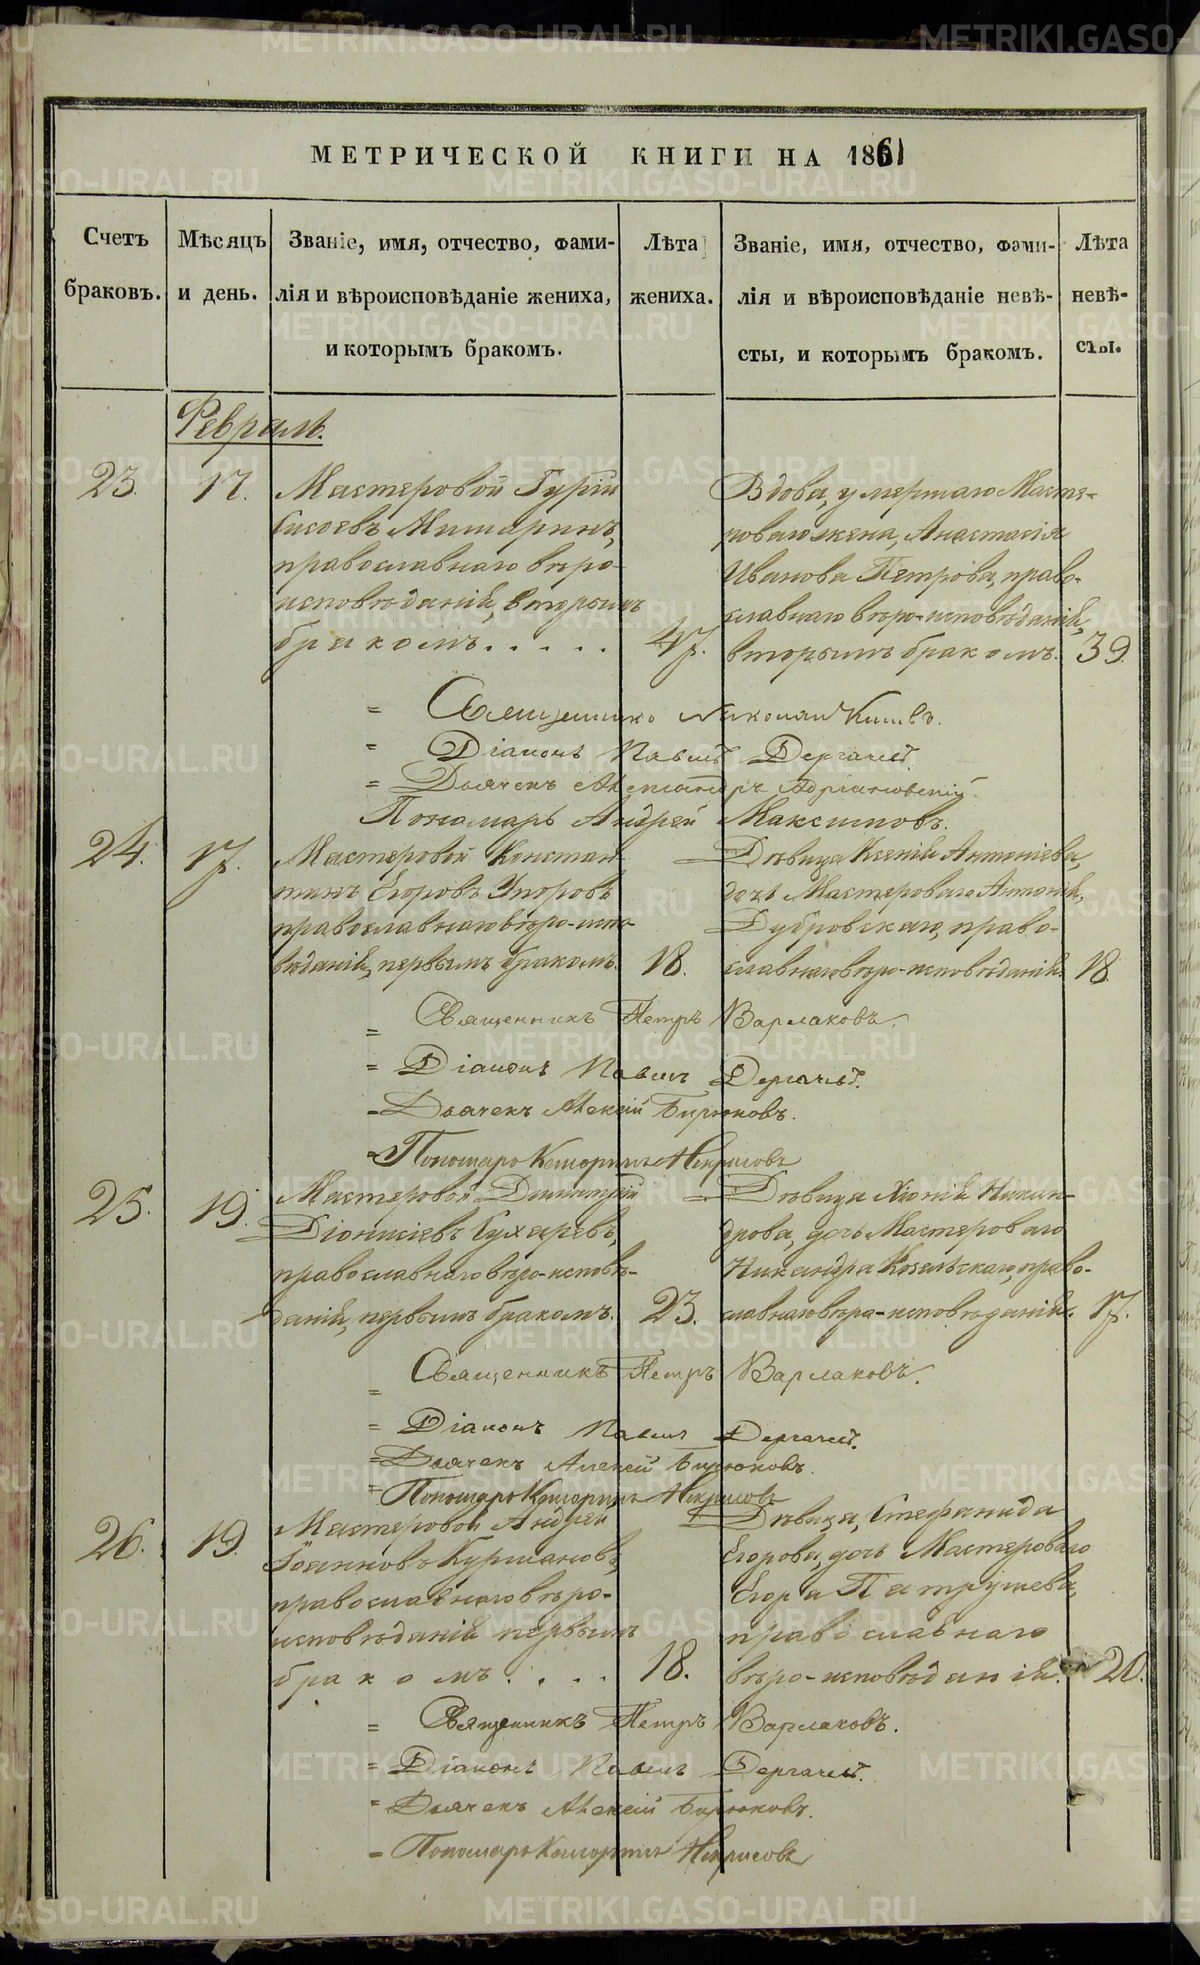 МЕТРИЧЕСКОЙ КНИГИ НА 1861
Счетъ браковъ.
Мѣсяцъ и день.
Званіе, имя, отчество, фами-
лія и вѣроисповѣданіе жениха,
и которымъ бракомъ.
Лѣта жениха.
Званіе, имя, отчество, фами-
лія и вѣроисповѣданіе невѣ-
сты, и которымъ бракомъ.
Лѣта невѣ-
сты.
Февраль.
23. 17. Мастеровой Гурій
Сисоевъ Митаринъ,
православнаго вѣро-
исповѣданій, вторымъ
бракомъ..... 47.
Вдова, умершаго Масте-
роваго жена, Анастасія
Иванова Петрова, право-
славнаго вѣро-исповѣданій,
вторымъ бракомъ. 39.
= Священникъ Николай
= Діаконъ Павелъ Дергачевъ.
= Дьячекъ Александръ Адріановскій.
Пономарь Андрей Максимовъ.
24. 17. Мастеровой Констан-
тинъ Егоровъ Упоровъ
православнаго вѣро-испо-
вѣданій, первымъ бракомъ. 18.
Дѣвица Ксенія Антоніева,
дочь Мастероваго Антонія,
Дубровскаго, право-
славнаго вѣро-исповѣданій. 18.
= Священникъ Петръ Варлаковъ.
= Діаконъ Павелъ Дергачевъ.
= Дьячекъ Алексій Бирюковъ.
= Пономарь Некрасовъ
25. 19. Мастеровой Димитрій
Діонисіевъ Кухаревъ,
православнаго вѣро-исповѣ-
даній, первымъ бракомъ. 23.
Дѣвица Хіонія Никан-
дрова, дочь Мастероваго
Никандра Козельскаго, право-
славнаго вѣро-исповѣданій. 17.
= Священникъ Петръ Варлаковъ.
= Діаконъ Павелъ Дергачевъ.
= Дьячекъ Алексій Бирюковъ.
= Пономарь Некрасовъ
26. 19. Мастеровой Андрей
Іоанновъ Курмановъ,
православнаго вѣро-
исповѣданій первымъ
бракомъ.... 18.
Дѣвица, Стефанида
Егорова, дочь Мастероваго
Егора Патрушева,
православнаго
вѣро-исповѣданій. 20.
= Священникъ Петръ Варлаковъ.
= Діаконъ Павелъ Дергачевъ.
= Дьячекъ Алексій Бирюковъ.
= Пономарь Некрасовъ
METRIKI.GASO-URAL.RU